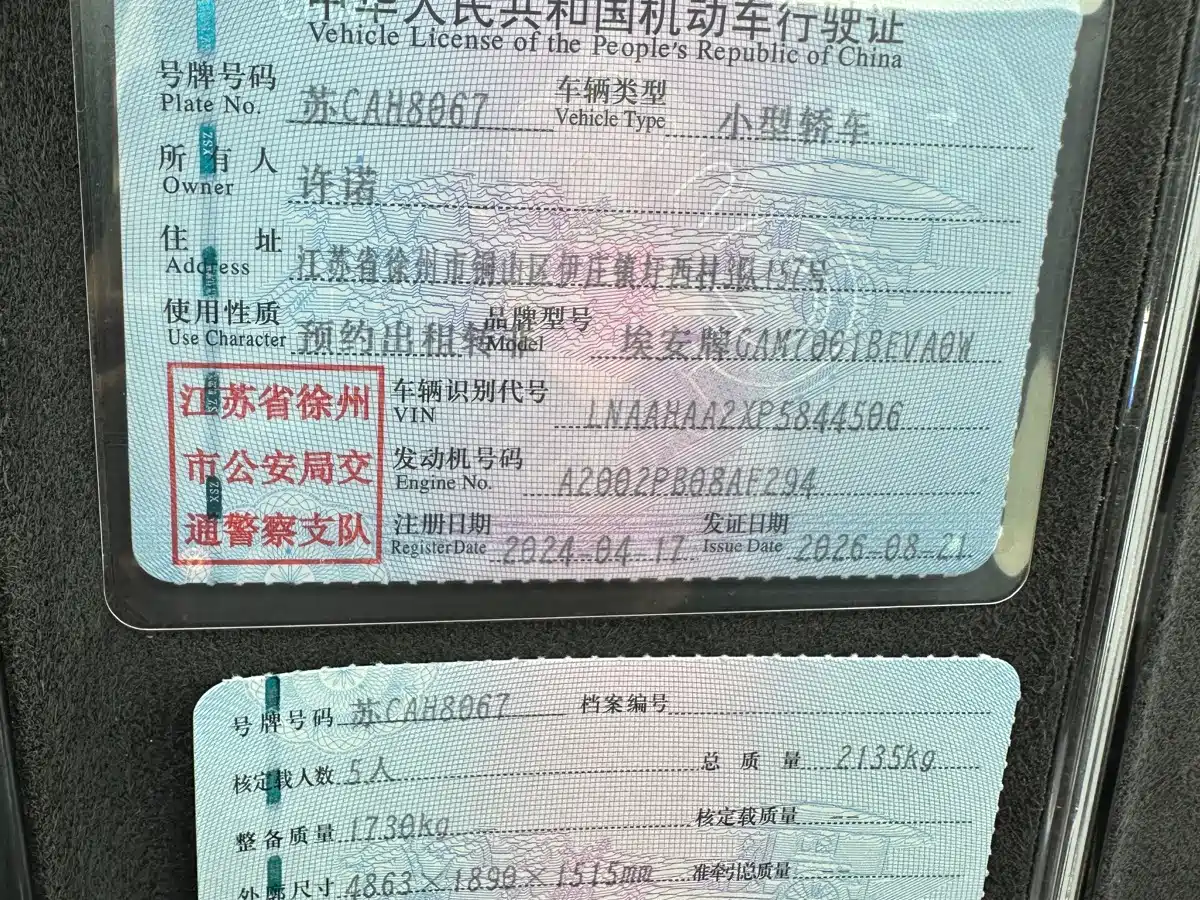 中华人民共和国机动车行驶证
Vehicle License of the People's Republic of China
号牌号码 苏CAH8067 车辆类型 小型轿车
Plate No. Vehicle Type
所有人 许诺
Owner
住址 江苏省徐州市铜山区伊庄镇圩西村3队157号
Address
使用性质 预约出租转 品牌型号 埃安牌GAM7001BEVA0W
Use Character Model
江苏省徐州
市公安局交
通警察支队
车辆识别代号 LNAAHAA2XP5844506
VIN
发动机号码 A2002PB08AF294
Engine No.
注册日期 2024-04-17 发证日期 2026-08-21
Register Date Issue Date
号牌号码 苏CAH8067 档案编号
核定载人数 5人 总质量 2135kg
整备质量 1730kg 核定载质量 --
外廓尺寸 4863×1890×1515mm 准牵引总质量 --